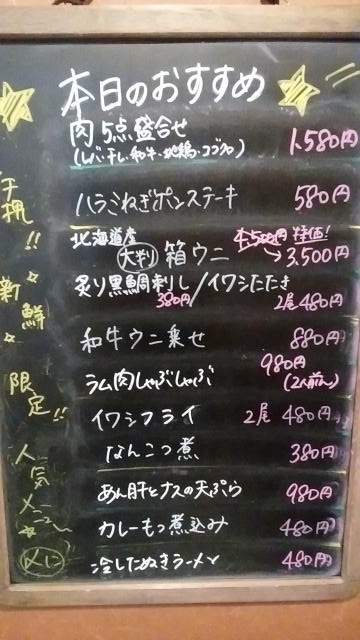 本日のおすすめ
肉5点盛合せ 1,580円
ハラミねぎポンステーキ 580円
北海道産 特価!
大判 箱ウニ 3,500円
炙り黒鯛刺し/イワシたたき
380円 2尾480円
和牛ウニ乗せ 880円
ラム肉しゃぶしゃぶ 980円
(2人前〜)
イワシフライ 2尾 480円
なんこつ煮 380円
あん肝とナスの天ぷら 980円
カレーもつ煮込み 480円
冷したぬきラーメン 480円
!!
新鮮
限定!!
人気メニュー
〆に